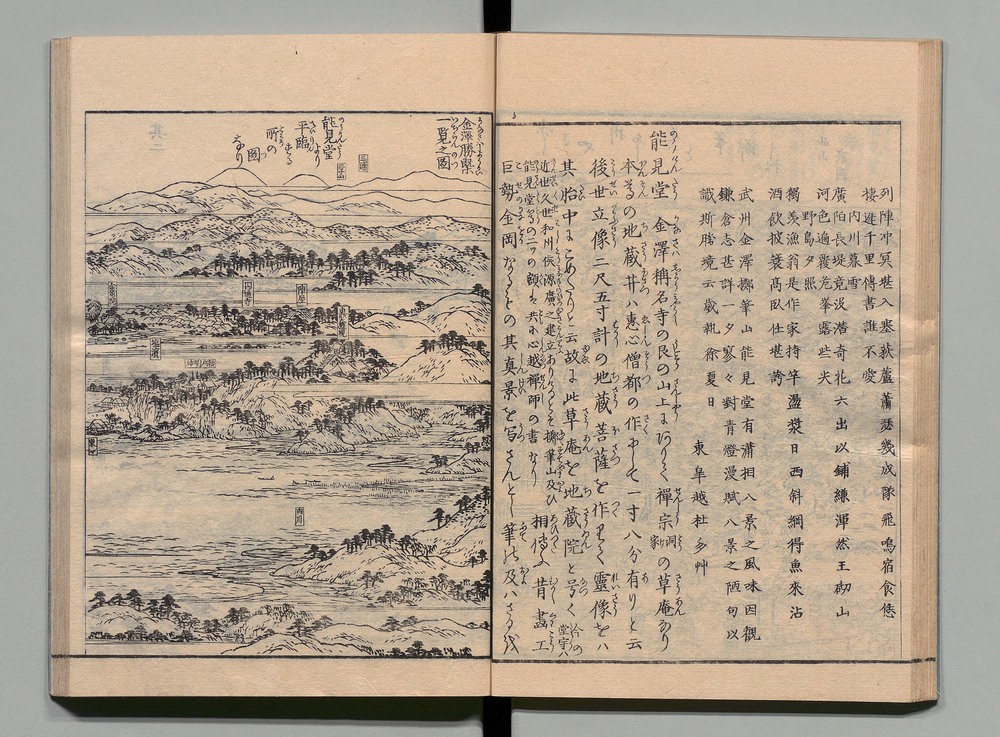 列陣冲冥堪入塞荻蘆蕭瑟幾成隊飛鳴宿食恁
棲遲千里傳書誰不愛
内川暮雪
廣陌長堤竟沒潜奇花六出以鋪縑渾然玉砌山
河色遍覆危峯露些尖
野島夕照
獨羨漁翁是作家持竿盪槳日西斜網得魚來沽
酒飲披蓑高臥任堪誇
武州金澤擲筆山能見堂有瀟相八景之風味因觀
鎌倉志甚詳一夕寥々對青燈漫賦八景之陋句以
識斯勝境云歳
徐夏日
東皐越杜多艸
能見堂 金澤稱名寺の艮の山上にありて禪宗洞家の草庵なり
本尊の地蔵井ハ恵心僧都の作にして一寸八分有りと云
後世立像二尺五寸計の地蔵菩薩を作りて靈像をハ
其胎中にこめたりと云故に此草庵を地蔵院と号く
近世久世和州侯源廣之建立ありたるとそ擲筆山及ひ
能見堂等の二つの額は共に心越禪師の書なり
相傳ふ昔畫工
巨勢金岡なるもの其真景を写さんとし筆の及ハさるを
金澤勝槩
一覧之圖
能見堂
より
平臨
する
所の
圖
なり
円通寺
内川